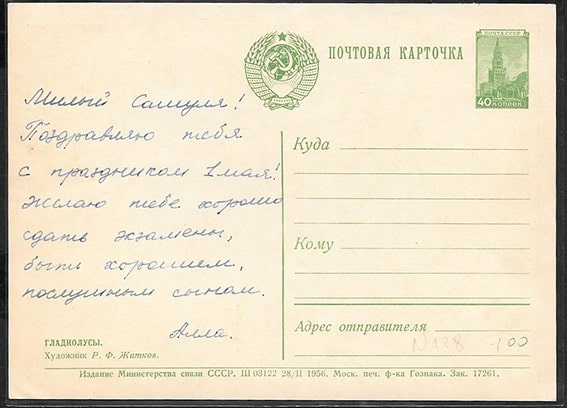 ПОЧТОВАЯ КАРТОЧКА
ПОЧТА СССР
40 КОПЕЕК
Милый Самуля!
Поздравляю тебя
с праздником 1 мая!
Желаю тебе хорошо
сдать экзамены,
быть хорошим,
послушным сыном.
Алла.
Куда
Кому
Адрес отправителя
N128 100
ГЛАДИОЛУСЫ.
Художник Р. Ф. Житков.
Издание Министерства связи СССР. Ш 03122 28/II 1956. Моск. печ. ф-ка Гознака. Зак. 17261.